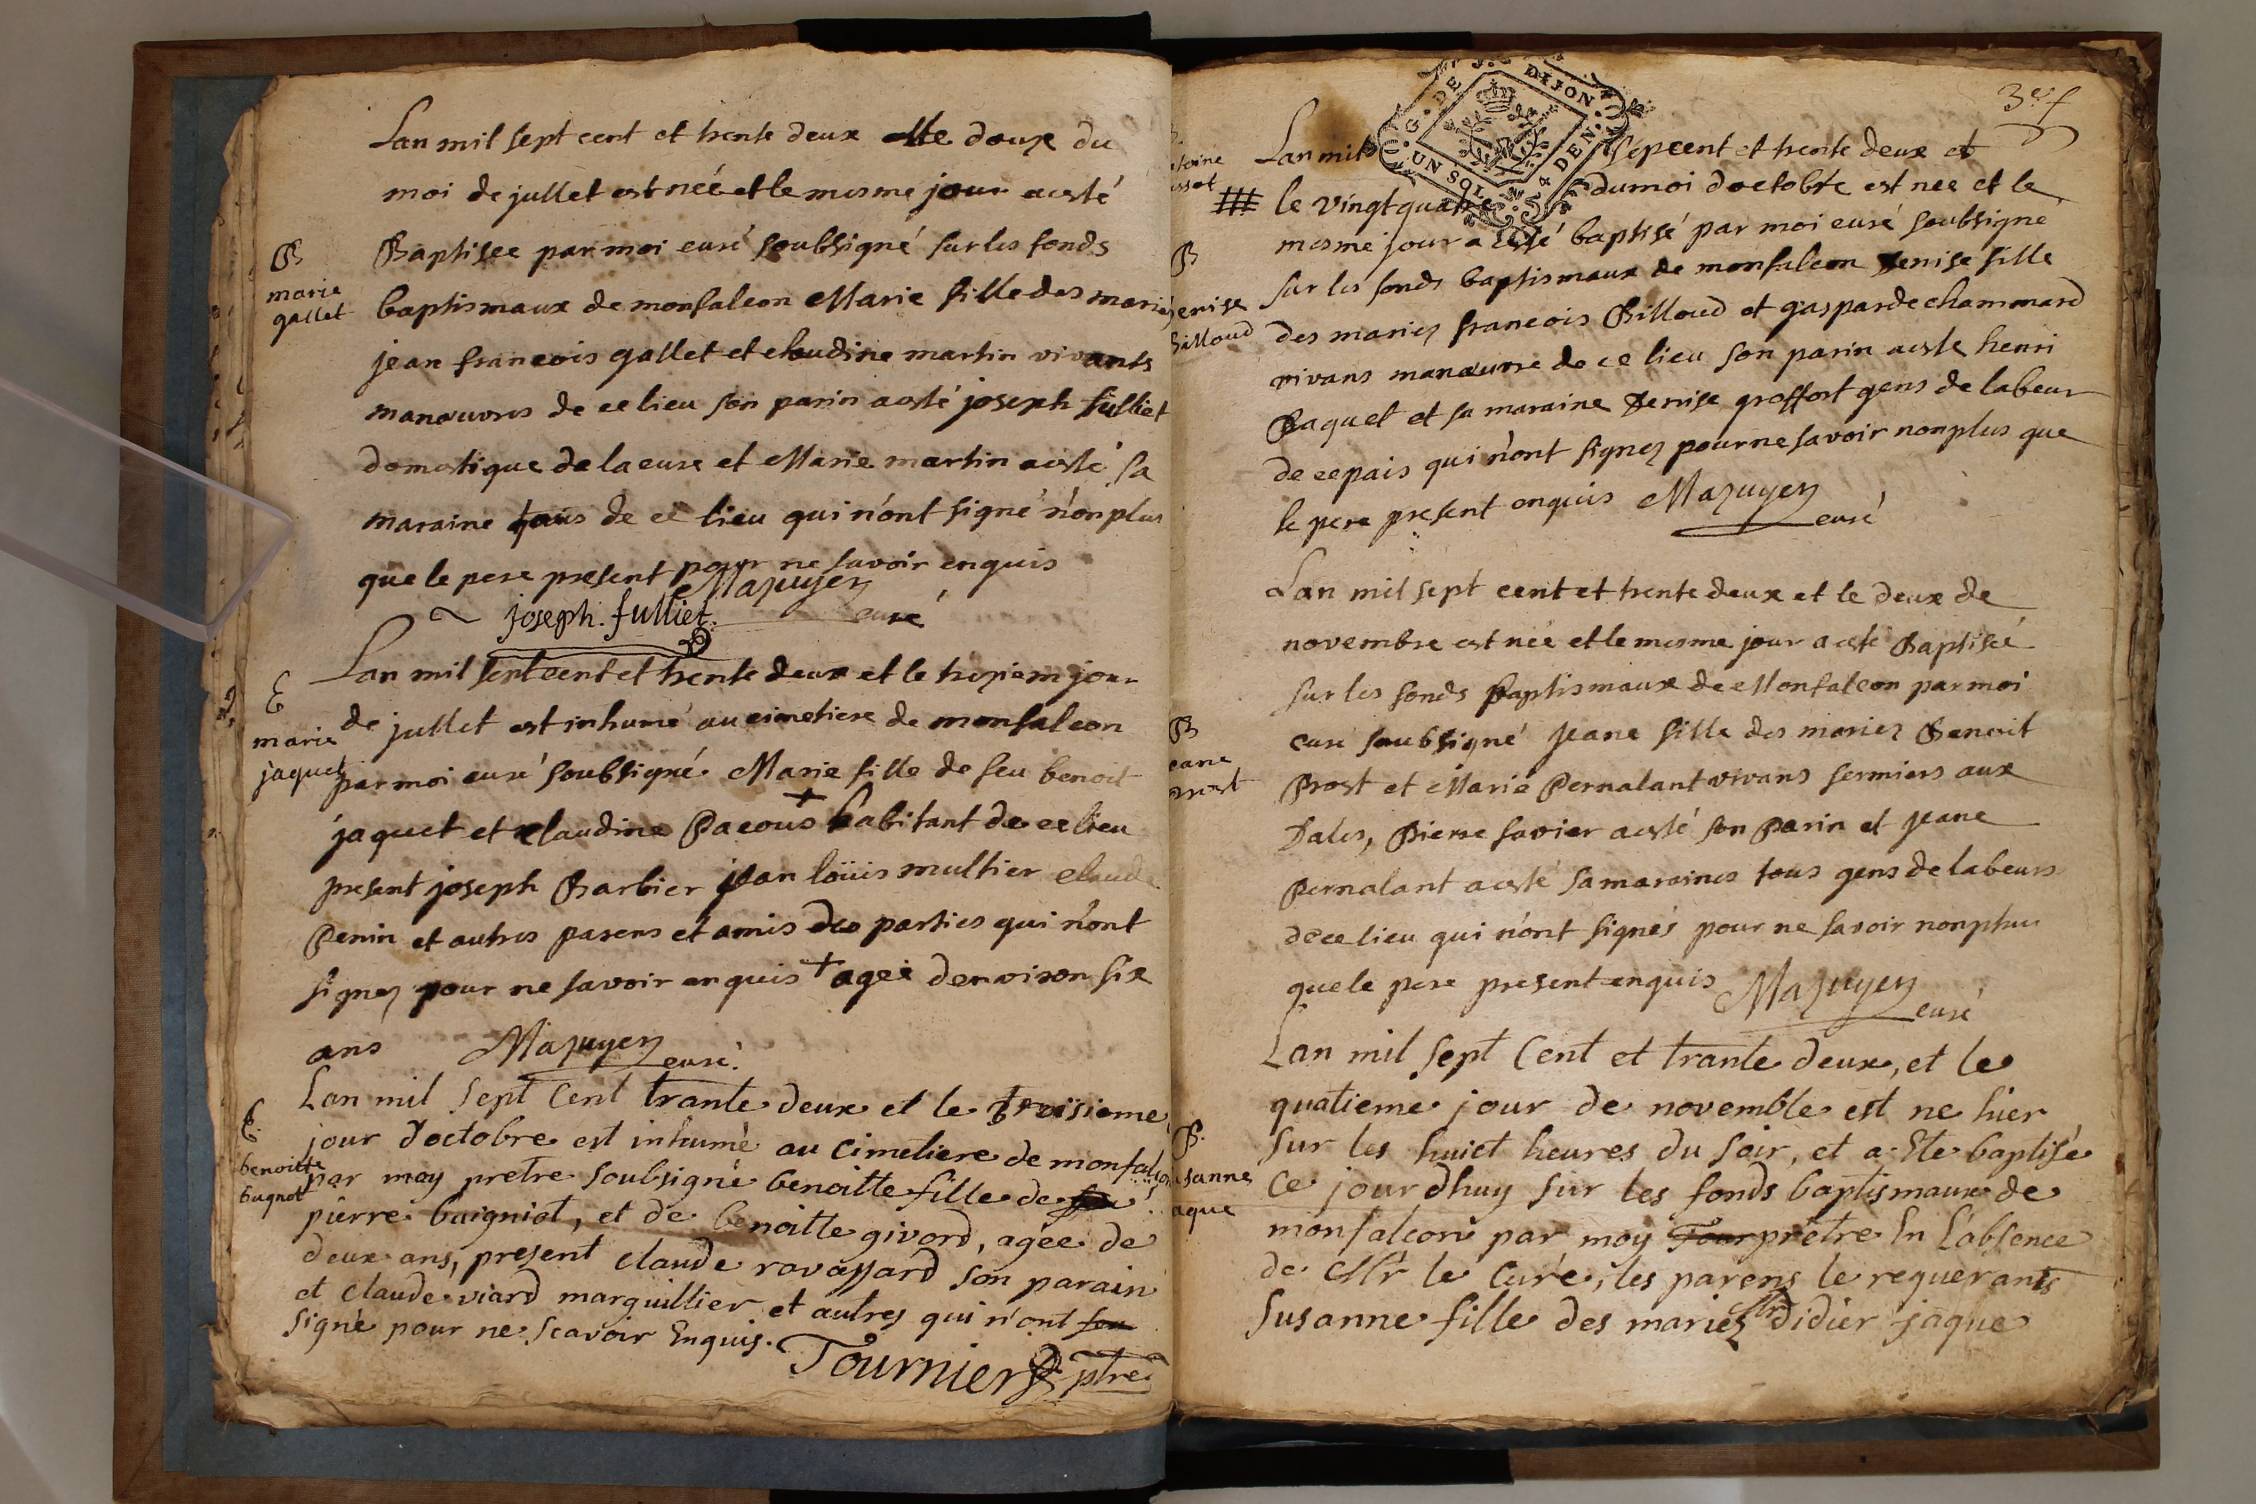 Lan mil sept cent et trente deux et le douze du
moi de jullet est neé et le mesme jour a esté
B
marie
gallet
Baptisee par moi curé soubsigné sur les fonds
baptismaux de monfalcon Marie fille des mariés
jean francois gallet et claudine martin vivants
manœuvres de ce lieu son parin a esté joseph fulliet
domestique de la cure et Marie martin a esté sa
maraine tous de ce lieu qui n'ont signé non plus
que le pere present pour ne savoir enquis
Mazuyer
joseph. fulliet. curé
E
marie
jaquet
Lan mil sept cent et trente deux et le troziem jour
de jullet est inhumé au cimetiere de monfalcon
par moi curé soubsigné Marie fille de feu benoit
jaquet et claudine Pacous + habitant de ce lieu
present joseph Barbier jean loüis multier claude
Penin et autres parens et amis des parties qui n'ont
signez pour ne savoir enquis + ageé d'environ six
ans Mazuyer curé.
E.
benoitte
bugnot
Lan mil sept cent trante deux et le troisieme
jour doctobre est inhumé au cimetiere de monfalcon
par moy pretre soubsigné benoitte fille de feu
pierre buigniot, et de benoitte givord, agée de
deux ans, present claude ravassard son parain
et claude viard marguillier et autres qui n'ont
signé pour ne scavoir Enquis.
Tournier ptre
3e f
G. DE DIJON
UN SOL 4 DEN.
Lan mil sepcent et trente deux et
le vingt quatre du moi doctobre est nee et le
mesme jour a esté baptisé par moi curé soubsigné
B
denise
Billoud
sur les fonds baptismaux de monfalcon Denise fille
des mariez francois Billoud et gasparde chammard
vivans manœuvre de ce lieu son parin a este henri
Paquet et sa maraine Denise groffort gens de labeur
de ce pais qui n'ont signez pour ne savoir non plus que
le pere present enquis Mazuyer
curé
Lan mil sept cent et trente deux et le deux de
novembre est neé et le mesme jour a esté Baptiseé
sur les fonds Baptismaux de Monfalcon par moi
B
jeane
prost
curé soubsigné jeane fille des mariez Benoit
Prost et Marie Pernalant vivans fermiers aux
Dales, Pierre favier a esté son Parin et jeane
Pernalant a esté sa maraines tous gens de labeurs
de ce lieu qui n'ont signés pour ne savoir non plus
que le pere present enquis Mazuyer
curé
Lan mil sept Cent et trante deux, et le
quatieme jour de novembre est ne hier
B.
susanne
jaque
sur les huict heures du soir, et a Ete baptisée
ce jourdhuy sur les fonds baptismaux de
monfalcon par moy Tour pretre En L'absence
de Mr le Curé, les parens le requerants
Susanne fille des mariez Sr didier jaque